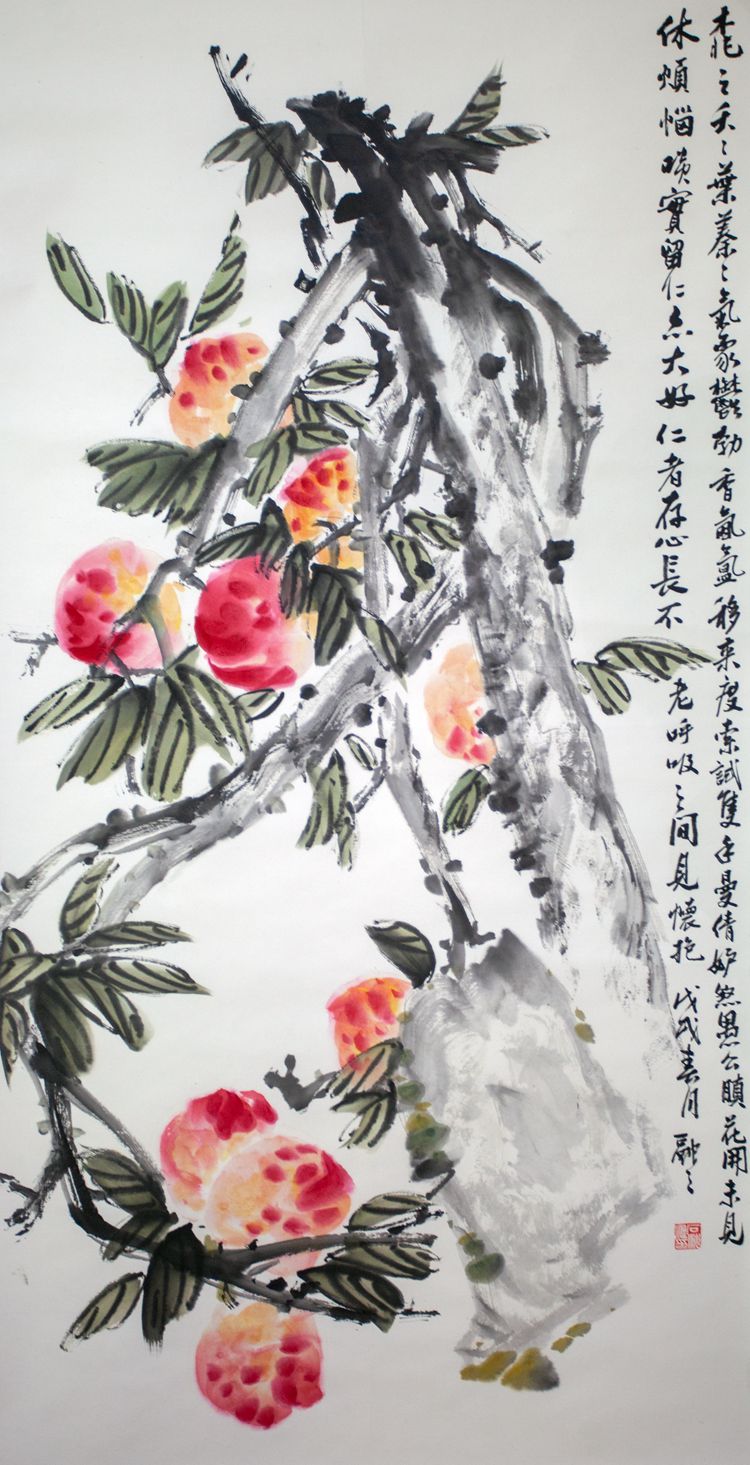 桃之夭夭葉蓁蓁氣象鬱勃香氤氳移來度索試隻手曼倩妒煞愚公瞋花開未見
休煩惱噉實留仁亦大好仁者存心長不老呼吸之間見懷抱戊戌春月融之